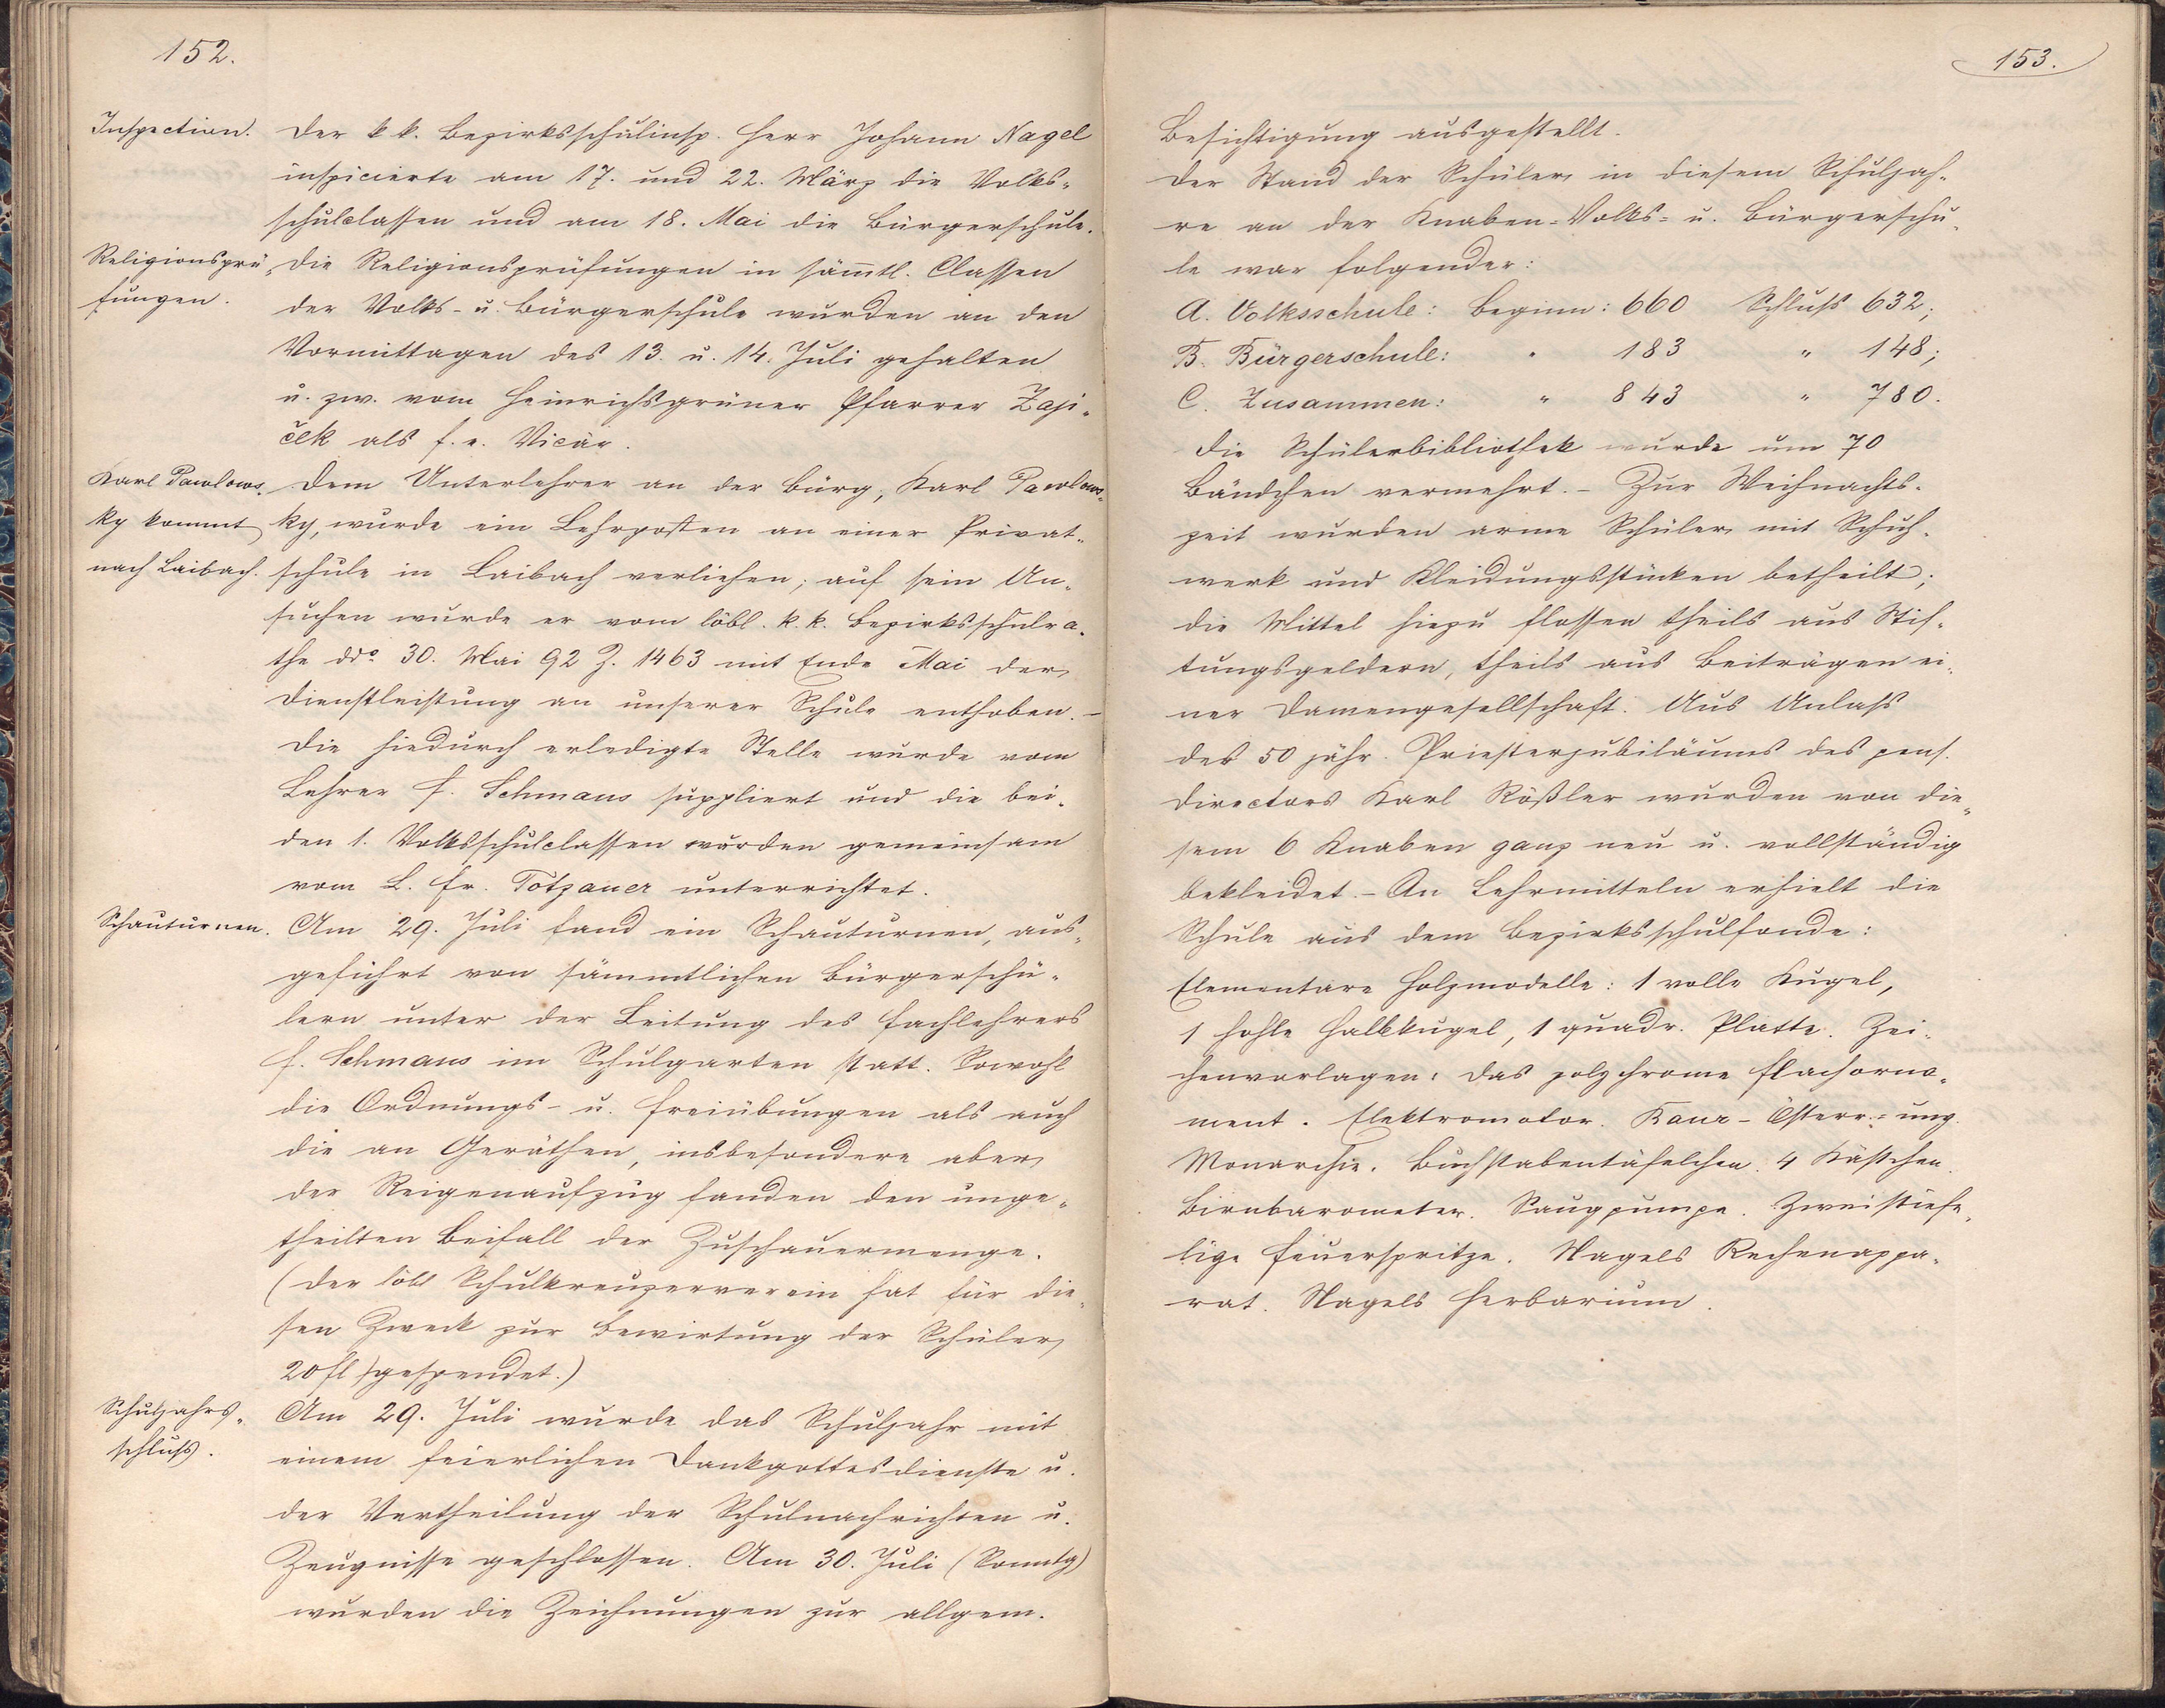 152.
Inspection.
Der k. k. Bezirksschulinsp. Herr Johann Nagel
inspicierte am 17. und 22. März die Volks-
schulclassen und am 18. Mai die Bürgerschule.
Religionsprü-
fungen.
Die Religionsprüfungen in sämtl. Classen
der Volks- u. Bürgerschule wurden an den
Vormittagen des 13. u. 14. Juli gehalten
u. zw. vom Heinrichsgrüner Pfarrer Zaji-
ček als f. e. Vicär.
Karl Pawlows-
ky kommt
nach Laibach.
Dem Unterlehrer an der Bürg, Karl Pawlows-
ky, wurde ein Lehrposten an einer Privat-
schule in Laibach verliehen; auf sein An-
suchen wurde er vom löbl. k. k. Bezirksschulra-
the ddo. 30. Mai 92 Z. 1463 mit Ende Mai der
Dienstleistung an unserer Schule enthoben. –
Die hiedurch erledigte Stelle wurde vom
Lehrer F. Schmaus suppliert und die bei-
den 1. Volksschulclassen wurden gemeinsam
vom L. Fr. Totzauer unterrichtet.
Schauturnen.
Am 29. Juli fand ein Schauturnen, aus-
geführt von sämmtlichen Bürgerschü-
lern unter der Leitung des Fachlehrers
F. Schmaus im Schulgarten statt. Sowohl
die Ordnungs- u. Freiübungen als auch
die an Geräthen, insbesondere aber
der Reigenaufzug fanden den unge-
theilten Beifall der Zuschauermenge.
(Der löbl Schulkreuzerverein hat für die-
sen Zweck zur Bewirtung der Schüler
20 fl gespendet.)
Schuljahrs-
schluß.
Am 29. Juli wurde das Schuljahr mit
einem feierlichen Dankgottesdienste u.
der Vertheilung der Schulnachrichten u.
Zeugnisse geschlossen. Am 30. Juli (Sonntg)
wurden die Zeichnungen zur allgem.
153.
Besichtigung ausgestellt.
Der Stand der Schüler in diesem Schuljah-
re an der Knaben-Volks- u. Bürgerschu-
le war folgender:
A. Volksschule: Beginn: 660 Schluß 632;
B. Bürgerschule: " 183 " 148;
C. Zusammen: " 843 " 780.
Die Schülerbibliothek wurde um 70
Bändchen vermehrt. – Zur Weihnachts-
zeit wurden arme Schüler mit Schuh-
werk und Kleidungsstücken betheilt;
die Mittel hiezu flossen theils aus Stif-
tungsgeldern, theils aus Beiträgen ei-
ner Damengesellschaft. Aus Anlaß
des 50 jähr. Priesterjubiläums des pens.
Directors Karl Rößler wurden von die-
sem 6 Knaben ganz neu u. vollständig
bekleidet. – An Lehrmitteln erhielt die
Schule aus dem Bezirksschulfonde:
Elementare Holzmodelle: 1 volle Kugel,
1 hohle Halbkugel, 1 quadr. Platte. Zei-
chenvorlagen: das polychrome Flachorna-
ment. Elektromotor. Baur – Österr.-ung.
Monarchie. Buchstabentäfelchen. 4 Kästchen.
Birnbarometer. Saugpumpe. Zweistiefe-
lige Feuerspritze. Nagels Rechenappa-
rat. Nagels Herbarium.